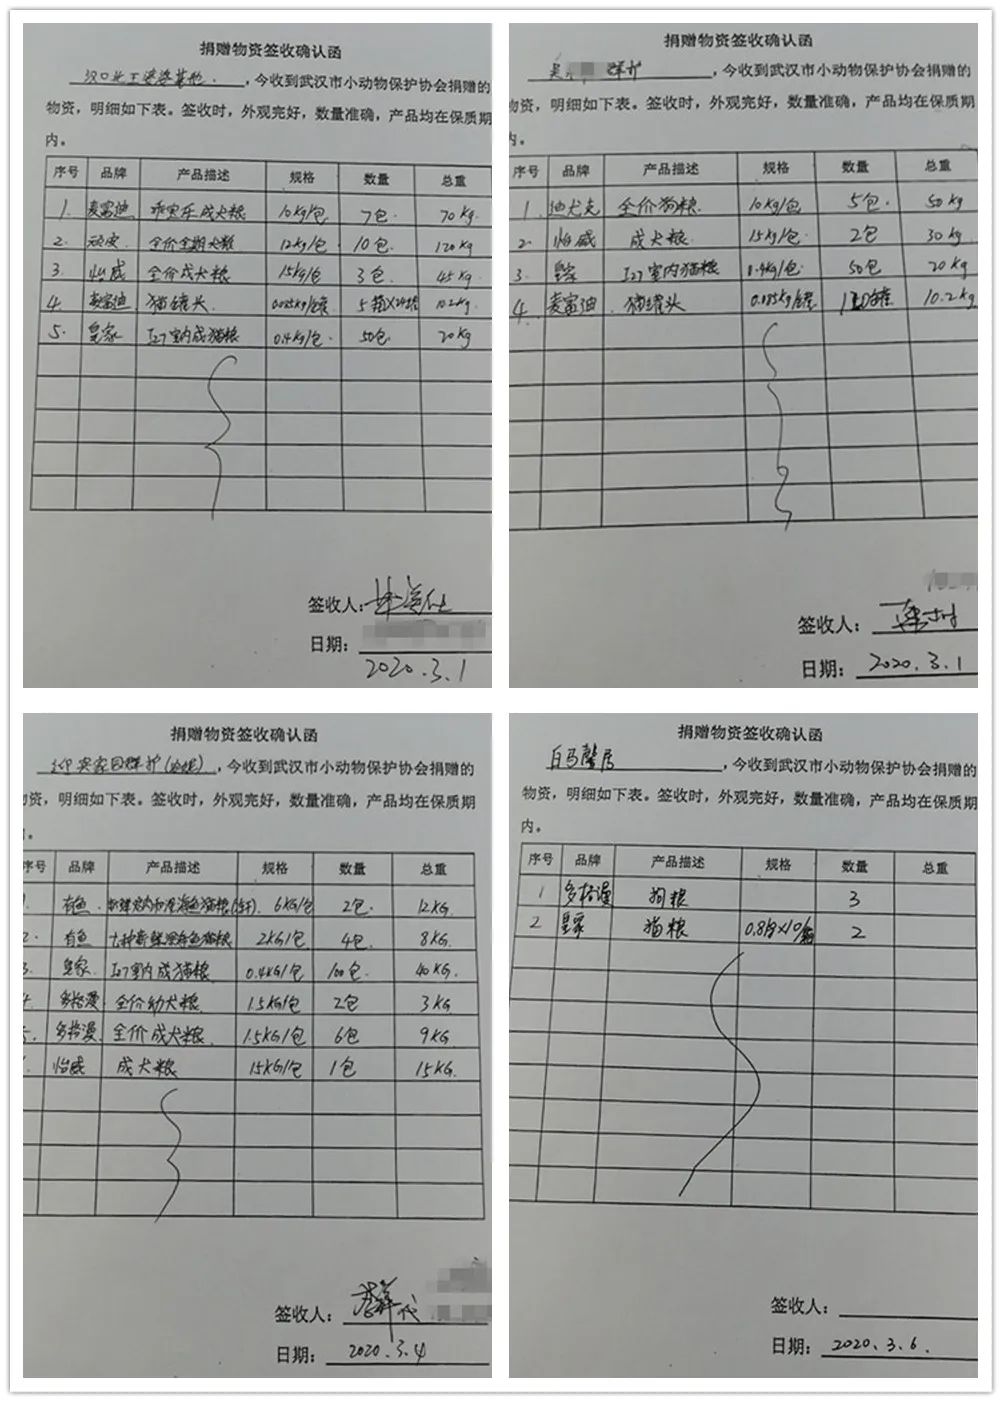 捐赠物资签收确认函
，今收到武汉市小动物保护协会捐赠的
物资，明细如下表。签收时，外观完好，数量准确，产品均在保质期
内。
序号 品牌 产品描述 规格 数量 总重
1. 麦富迪 乖宝乐成犬粮 10kg/包 7包. 70kg.
2. 顽皮. 全价全期犬粮 12kg/包 10包. 120kg
3. 怡威 全价成犬粮 15kg/包 3包. 45kg.
4. 麦富迪. 猫罐头. 0.085kg/罐 5箱X24罐 10.2kg.
5. 皇家. I27室内成猫粮 0.4kg/包. 50包. 20kg
签收人:
日期:
2020.3.1
捐赠物资签收确认函
群护 ，今收到武汉市小动物保护协会捐赠的
物资，明细如下表。签收时，外观完好，数量准确，产品均在保质期
内。
序号 品牌 产品描述 规格 数量 总重
1. 迪犬克 全价狗粮. 10kg/包 5包. 50kg
2. 怡威 成犬粮. 15kg/包. 2包 30kg.
3 皇家 I27室内猫粮 0.4kg/包. 50包 20kg
4. 麦富迪. 猫罐头 0.085kg/罐 120罐 10.2kg
签收人:
日期: 2020.3.1
捐赠物资签收确认函
家园群护 ，今收到武汉市小动物保护协会捐赠的
资，明细如下表。签收时，外观完好，数量准确，产品均在保质期
序号 品牌 产品描述 规格 数量 总重
有鱼. 海鱼猫粮 6KG/包 2包. 12KG.
2. 有鱼 七种 鱼猫粮 2KG/包 4包. 8KG.
3. 皇家. I27室内成猫粮. 0.4KG/包 100包. 40KG.
多格漫 全价幼犬粮. 1.5KG/包 2包 3KG
多格漫. 全价成犬粮. 1.5KG/包 6包 9KG
怡威 成犬粮 15KG/包 1包 15KG.
签收人:
日期: 2020.3.4
捐赠物资签收确认函
白马馨居 ，今收到武汉市小动物保护协会捐赠的
物资，明细如下表。签收时，外观完好，数量准确，产品均在保质期
内。
序号 品牌 产品描述 规格 数量 总重
1 多格漫 狗粮 3
2 皇家 猫粮 2
签收人:
日期: 2020.3.6.